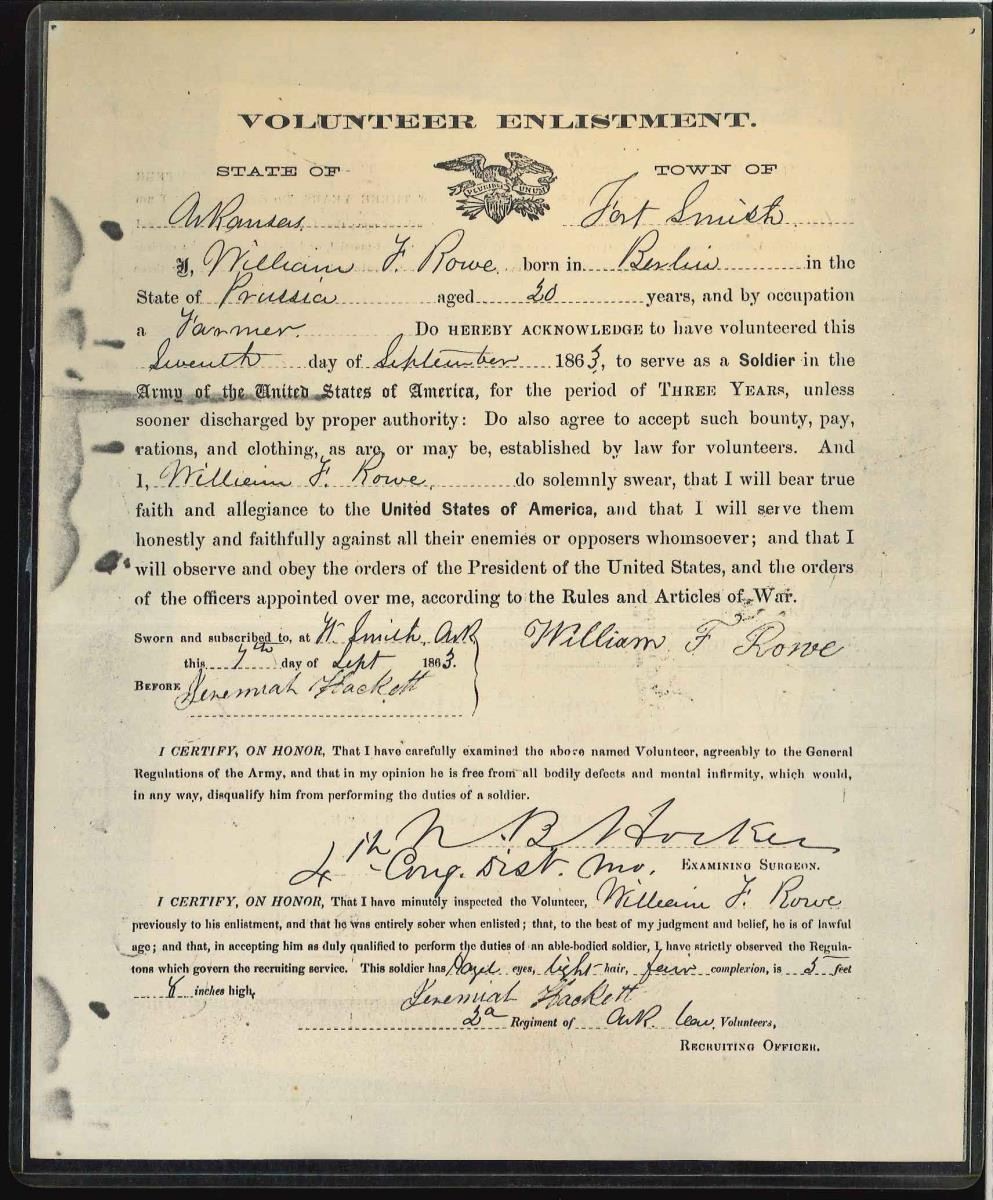 VOLUNTEER ENLISTMENT.
STATE OF TOWN OF
PLURIBUS UNUM
Arkansas Fort Smith
I, William F. Rowe born in Berlin in the
State of Prussia aged 30 years, and by occupation
a Farmer. Do HEREBY ACKNOWLEDGE to have volunteered this
Seventh day of September 1863, to serve as a Soldier in the
Army of the United States of America, for the period of THREE YEARS, unless
sooner discharged by proper authority: Do also agree to accept such bounty, pay,
rations, and clothing, as are, or may be, established by law for volunteers. And
I, William F. Rowe, do solemnly swear, that I will bear true
faith and allegiance to the United States of America, and that I will serve them
honestly and faithfully against all their enemies or opposers whomsoever; and that I
will observe and obey the orders of the President of the United States, and the orders
of the officers appointed over me, according to the Rules and Articles of War.
Sworn and subscribed to, at Ft Smith, Ark William F Rowe
this 7th day of Sept 1863.
BEFORE Jeremiah Hackett
I CERTIFY, ON HONOR, That I have carefully examined the above named Volunteer, agreeably to the General
Regulations of the Army, and that in my opinion he is free from all bodily defects and mental infirmity, which would,
in any way, disqualify him from performing the duties of a soldier.
N. B. Hocker
4th Cong. Dist. Mo. EXAMINING SURGEON.
I CERTIFY, ON HONOR, That I have minutely inspected the Volunteer, William F. Rowe
previously to his enlistment, and that he was entirely sober when enlisted; that, to the best of my judgment and belief, he is of lawful
age; and that, in accepting him as duly qualified to perform the duties of an able-bodied soldier, I have strictly observed the Regula-
tions which govern the recruiting service. This soldier has Hazel eyes, light hair, fair complexion, is 5 feet
8 inches high,
Jeremiah Hackett
2d Regiment of Ark Cav. Volunteers,
RECRUITING OFFICER.